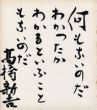 何もないのだ
わかったか
わかるということ
もないのだ
高橋新吉